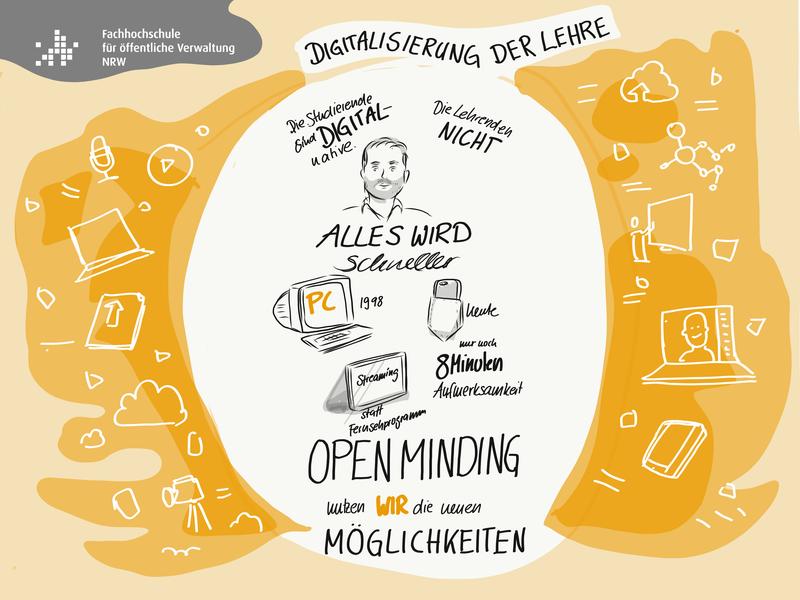 Fachhochschule
für öffentliche Verwaltung
NRW
DIGITALISIERUNG DER LEHRE
Die Studierende
sind DIGITAL-
native.
Die Lehrenden
NICHT
ALLES WIRD
Schneller
PC
1998
heute
nur noch
8 Minuten
Aufmerksamkeit
Streaming
statt
Fernsehprogramm
OPEN MINDING
nutzen WIR die neuen
MÖGLICHKEITEN